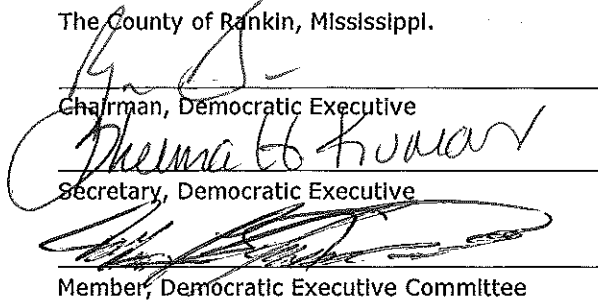 The County of Rankin, Mississippi.
Chairman, Democratic Executive
Kumar
Secretary, Democratic Executive
Member, Democratic Executive Committee